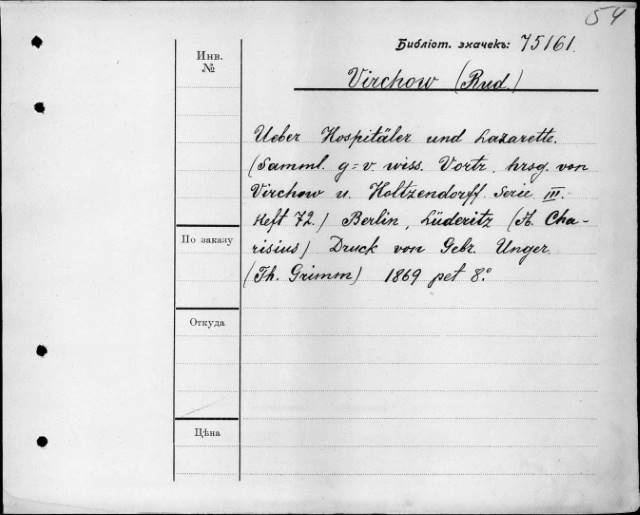 54
Библіот. значекъ: 75161.
Инв.
№
Virchow (Rud.)
Ueber Hospitäler und Lazarette.
(Samml. g=v. wiss. Vortr. hrsg. von
Virchow u. Holtzendorff. Serie III.
Heft 72.) Berlin, Lüderitz (A. Cha-
risius) Druck von Gebr. Unger
(Th. Grimm) 1869 pet 8º
По заказу
Откуда
Цѣна